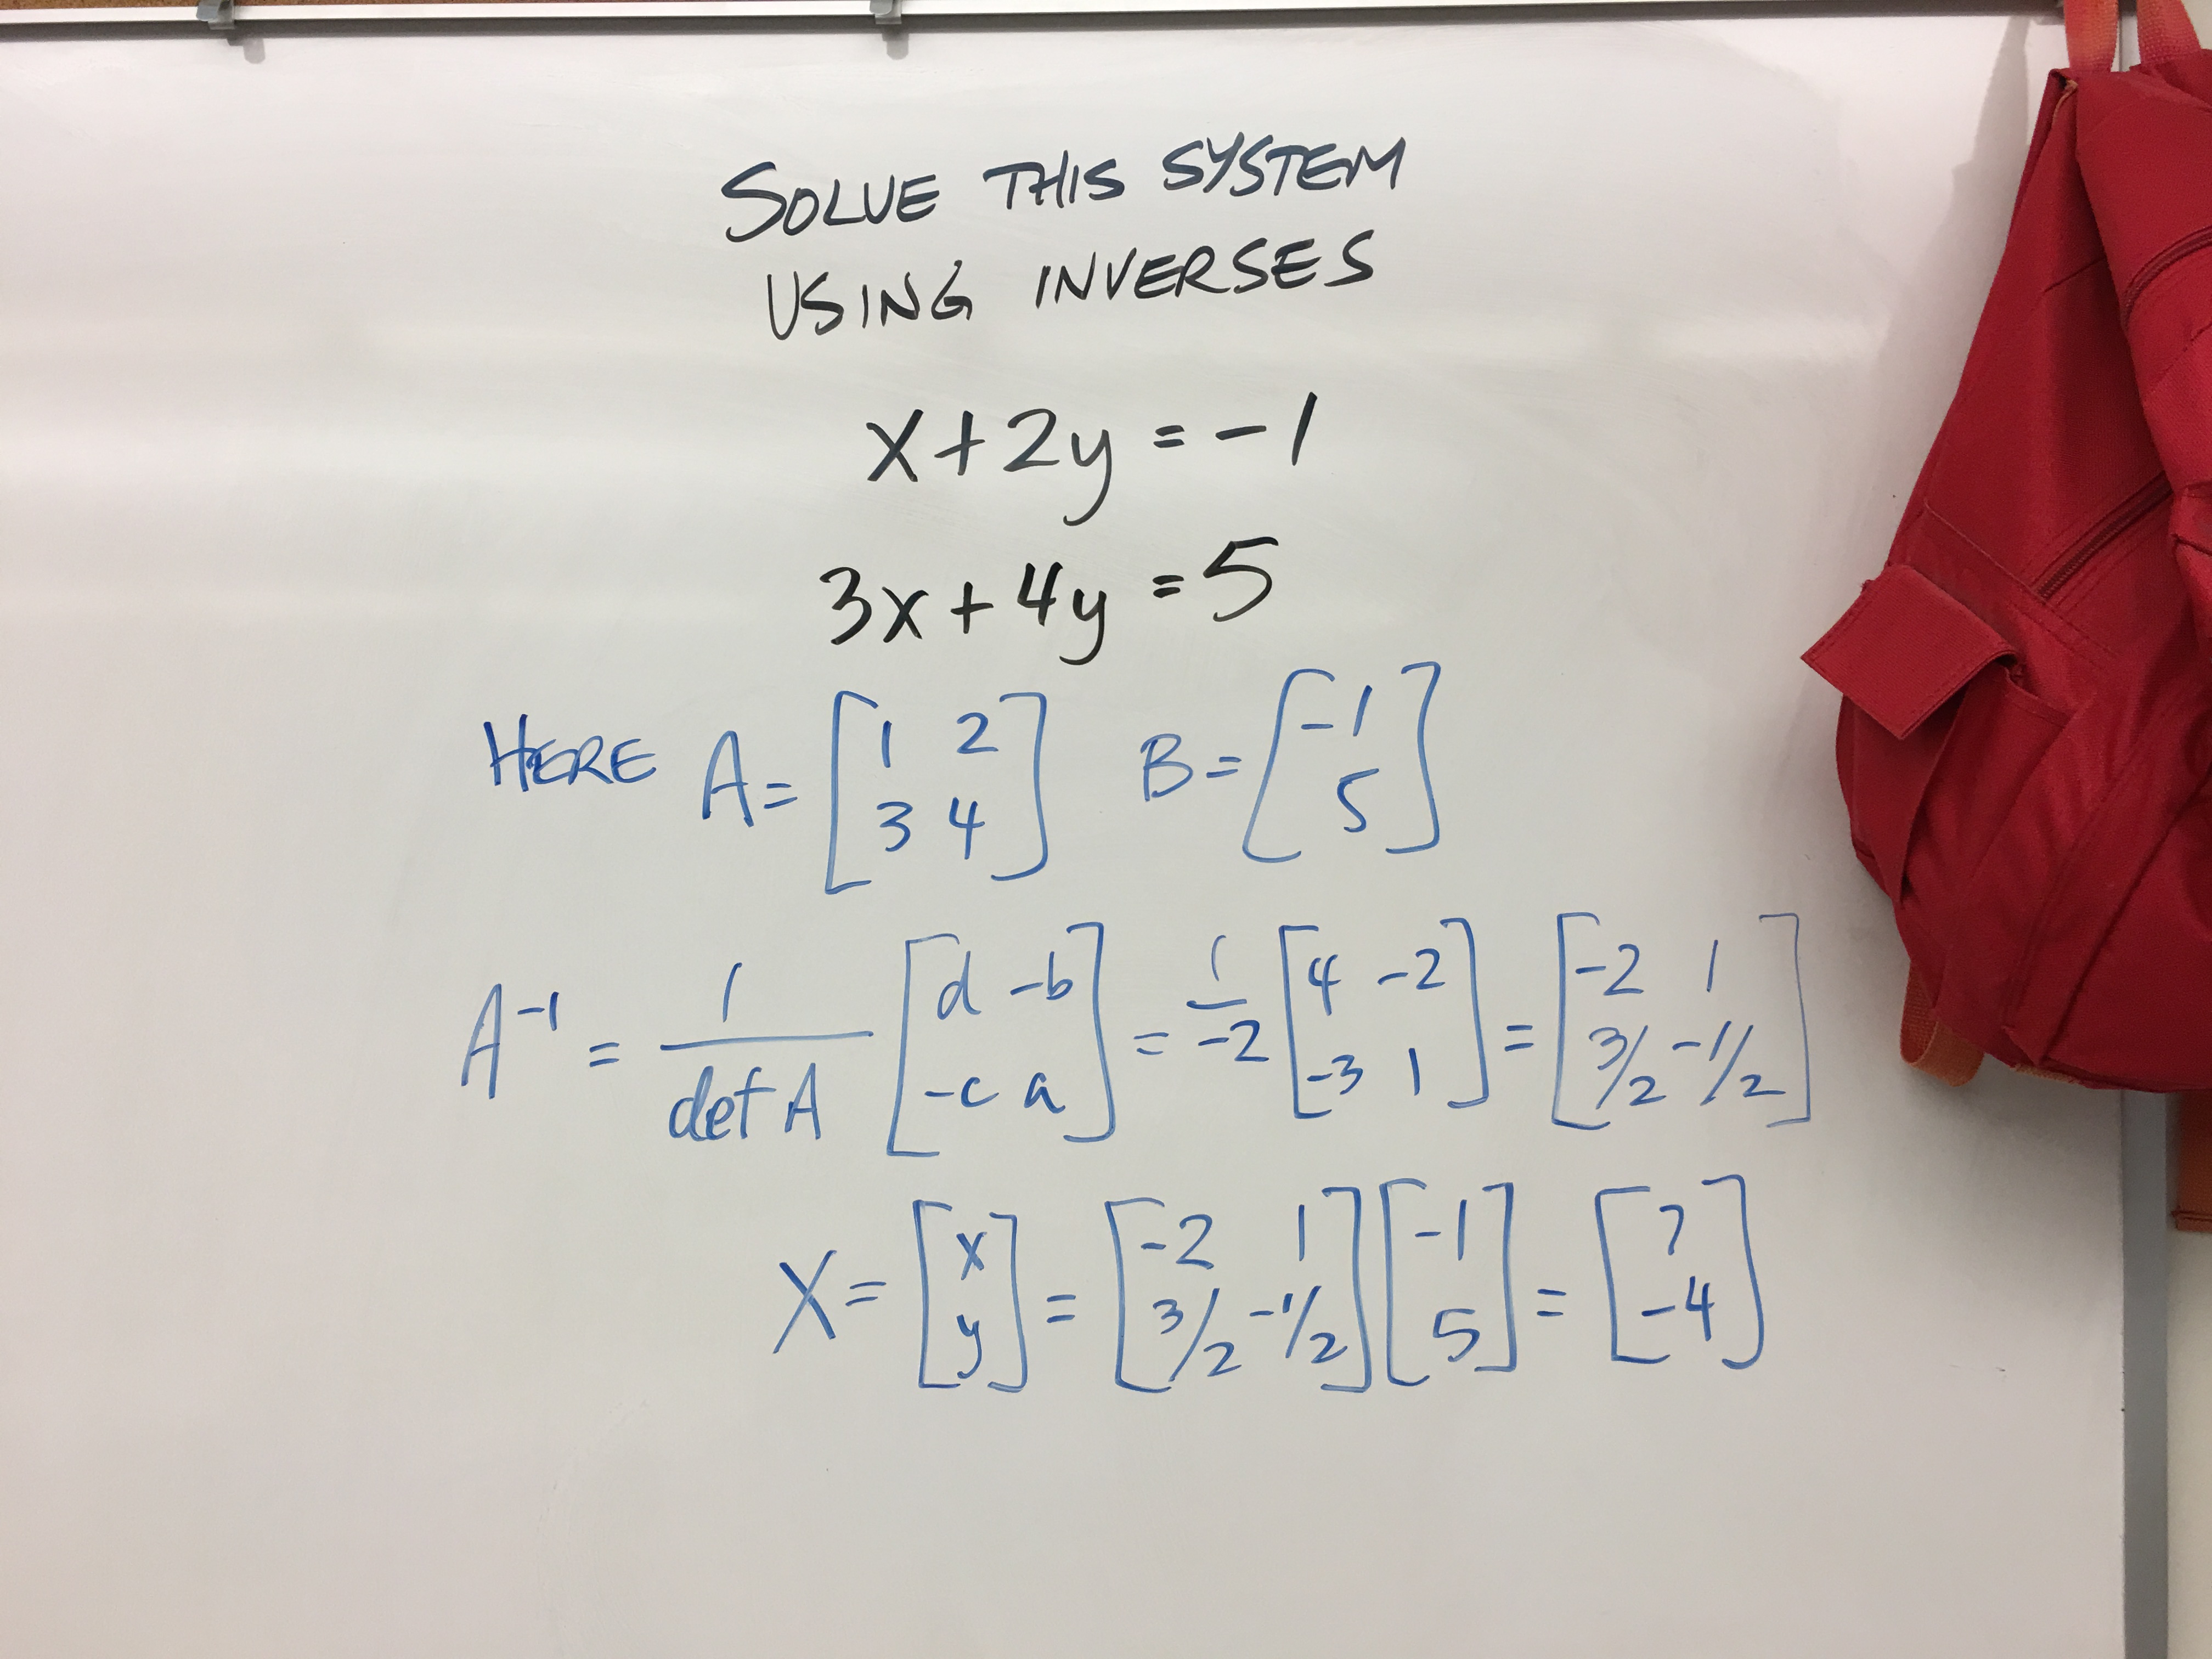 SOLVE THIS SYSTEM
USING INVERSES
x+2y=-1
3x+4y=5
HERE A=[1 2; 3 4] B=[-1; 5]
A⁻¹ = 1/det A [d -b; -c a] = 1/-2 [4 -2; -3 1] = [-2 1; 3/2 -1/2]
X=[x; y]=[-2 1; 3/2 -1/2][-1; 5]=[7; -4]